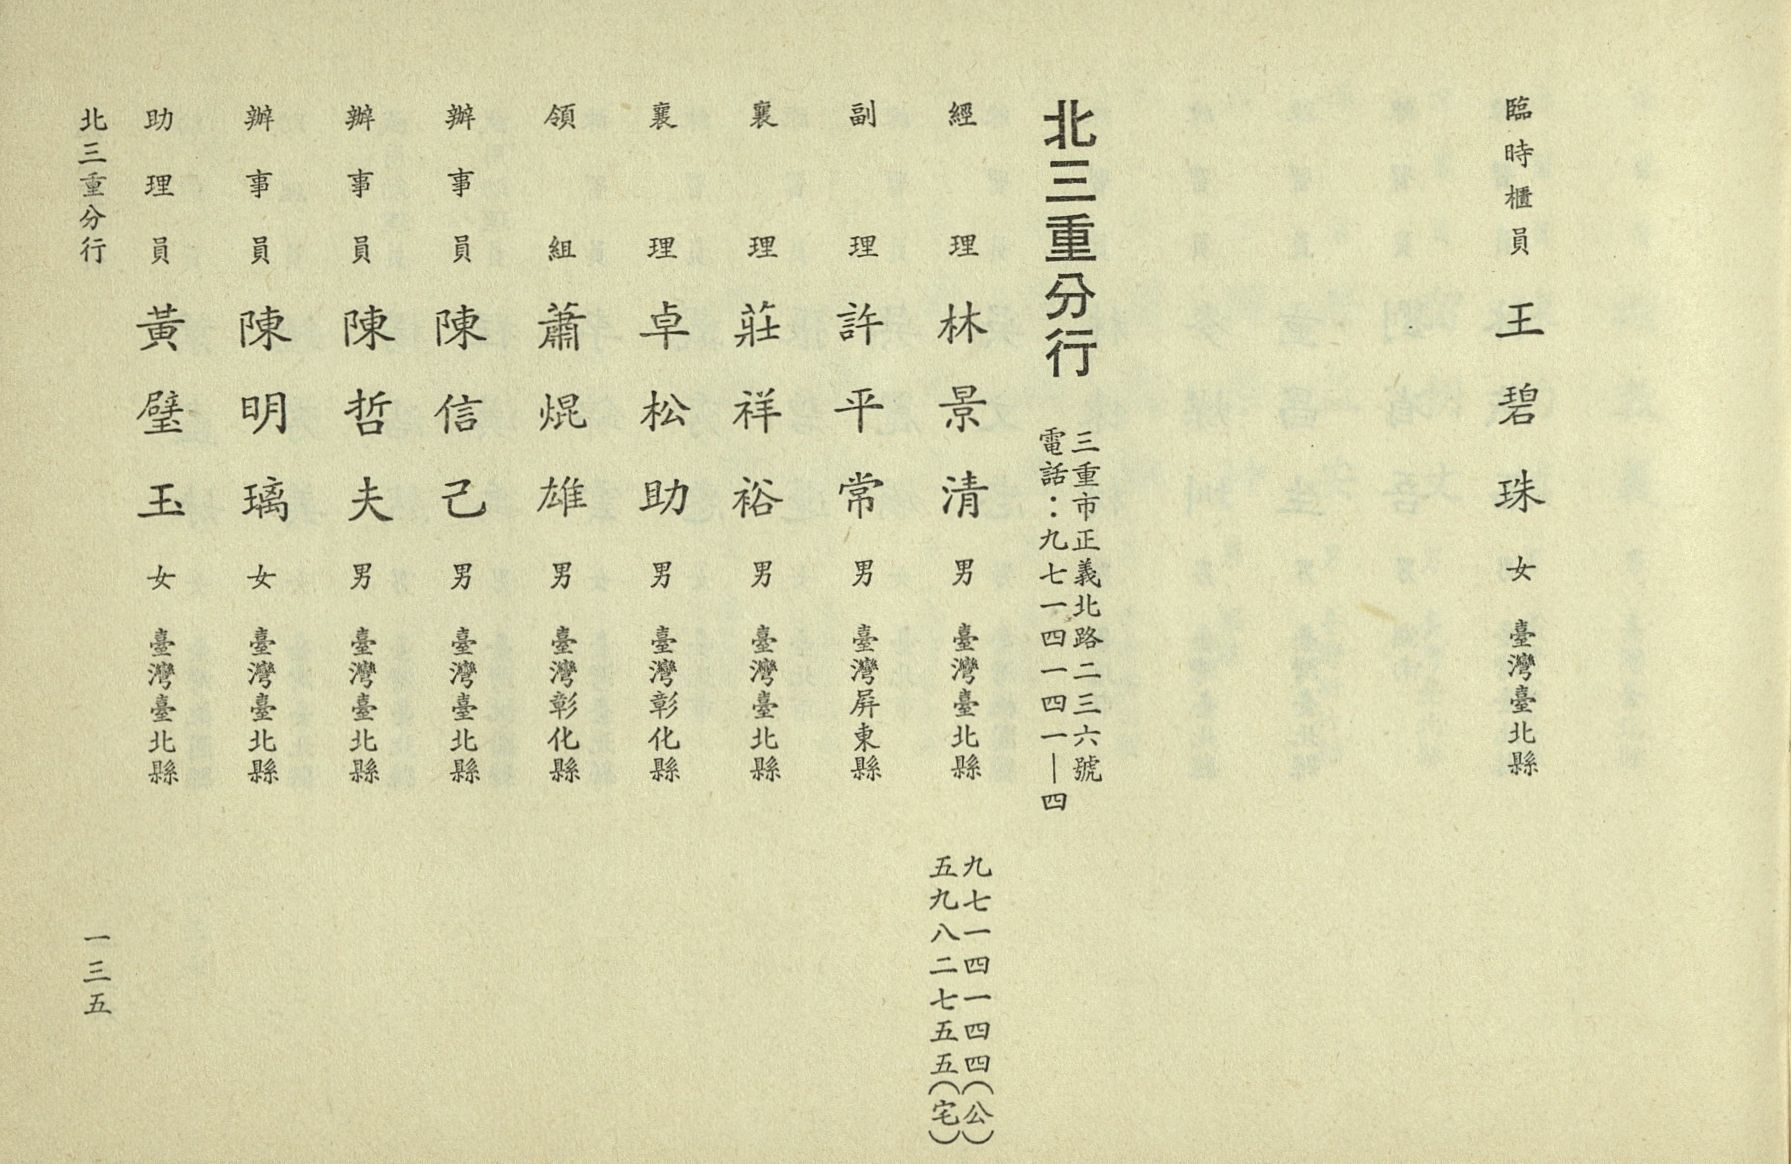 臨時櫃員 王碧珠 女 臺灣臺北縣
北三重分行
三重市正義北路二三六號
電話：九七一四一四一—四
經理 林景清 男 臺灣臺北縣
九七一四一四四（公）
五九八二七五五（宅）
副理 許平常 男 臺灣屏東縣
襄理 莊祥裕 男 臺灣臺北縣
襄理 卓松助 男 臺灣彰化縣
領組 蕭焜雄 男 臺灣彰化縣
辦事員 陳信己 男 臺灣臺北縣
辦事員 陳哲夫 男 臺灣臺北縣
辦事員 陳明璃 女 臺灣臺北縣
助理員 黃璧玉 女 臺灣臺北縣
北三重分行
一三五